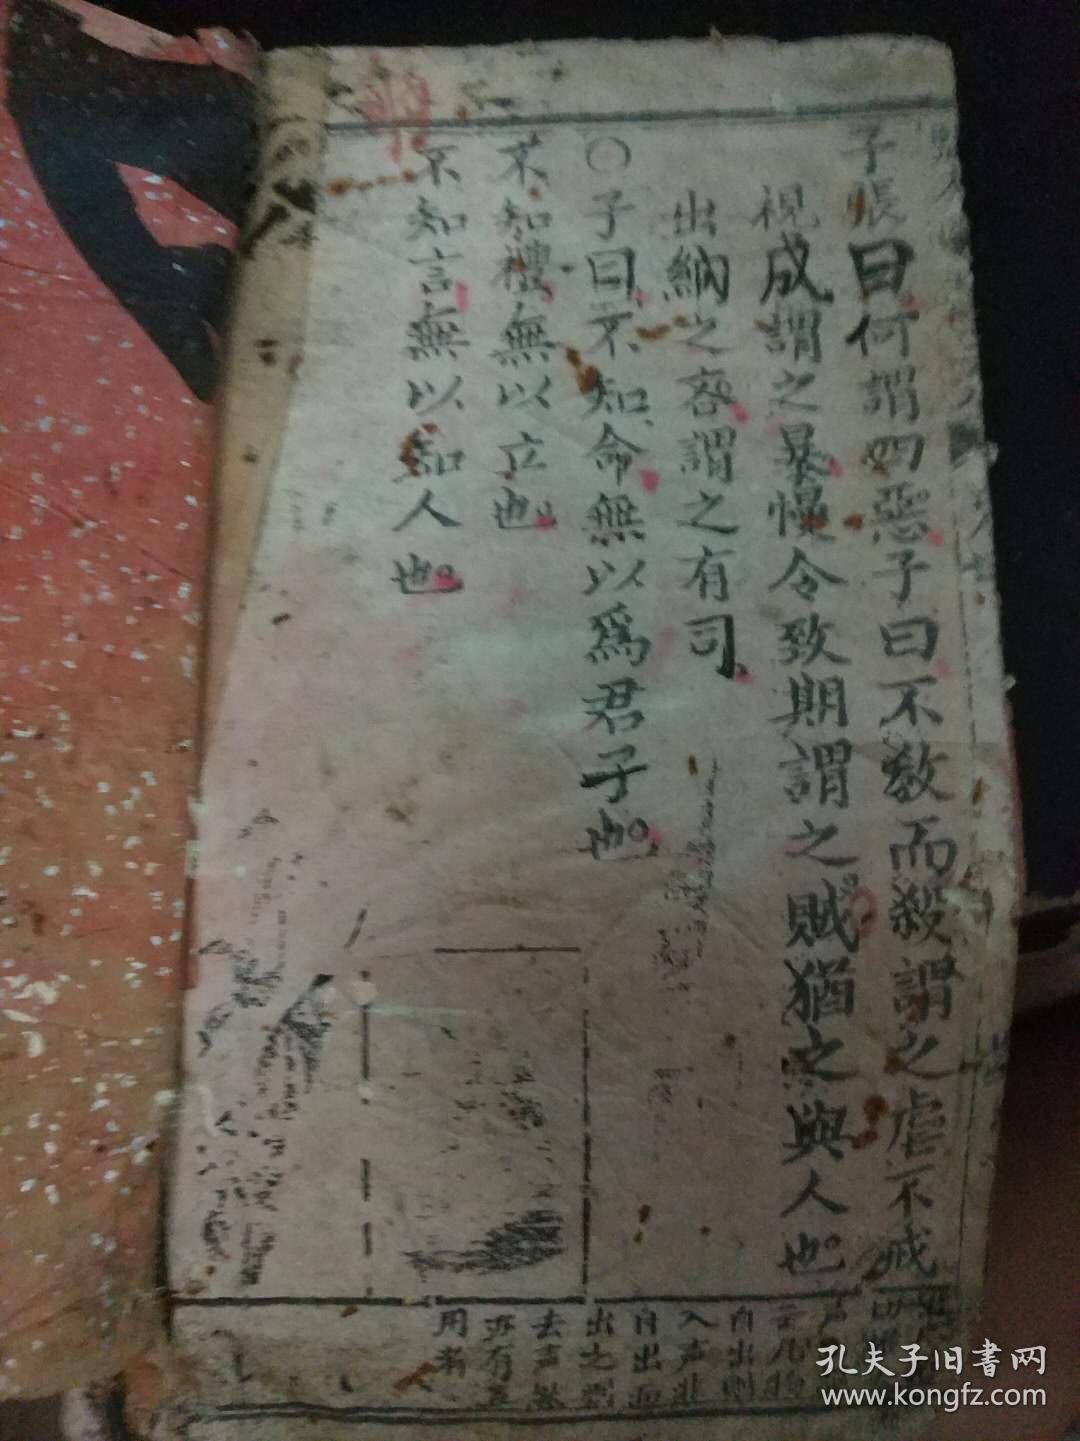 子張曰何謂四惡子曰不教而殺謂之虐不戒
視成謂之暴慢令致期謂之賊猶之與人也
出納之吝謂之有司
〇子曰不知命無以爲君子也
不知禮無以立也
不知言無以知人也
自出則
入声非
自出而
出之則
去声然
亦有互
用者
孔夫子旧書网
www.kongfz.com